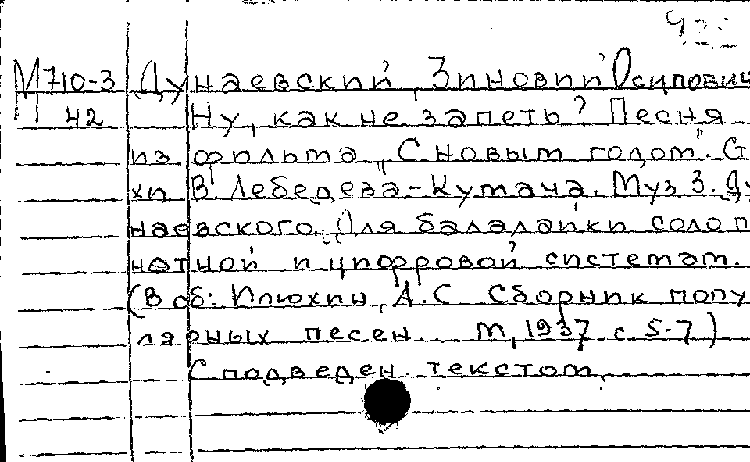 М710-3 Дунаевский, Зиновий Осипович
42 Ну, как не запеть? Песня
из фильма „С новым годом". Ст
хи В Лебедева-Кумача. Муз З. Ду
наевского. Для балалайки соло п
нотной и цифровой системам.
(В сб: Илюхин, А.С Сборник попу
лярных песен. М, 1937 с 5-7)
С подведен. текстом.